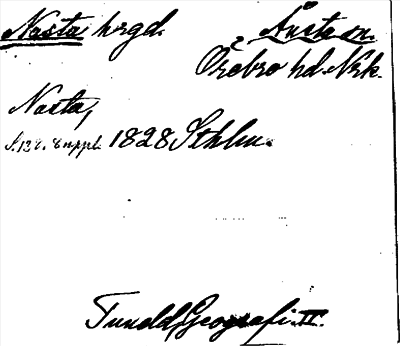 Nasta hrgd. Ånsta sn.
Örebro hd. Nrk.
Nasta,
s. 128. 8 uppl. 1828 Sthlm.
Tuneld, Geografi. II.